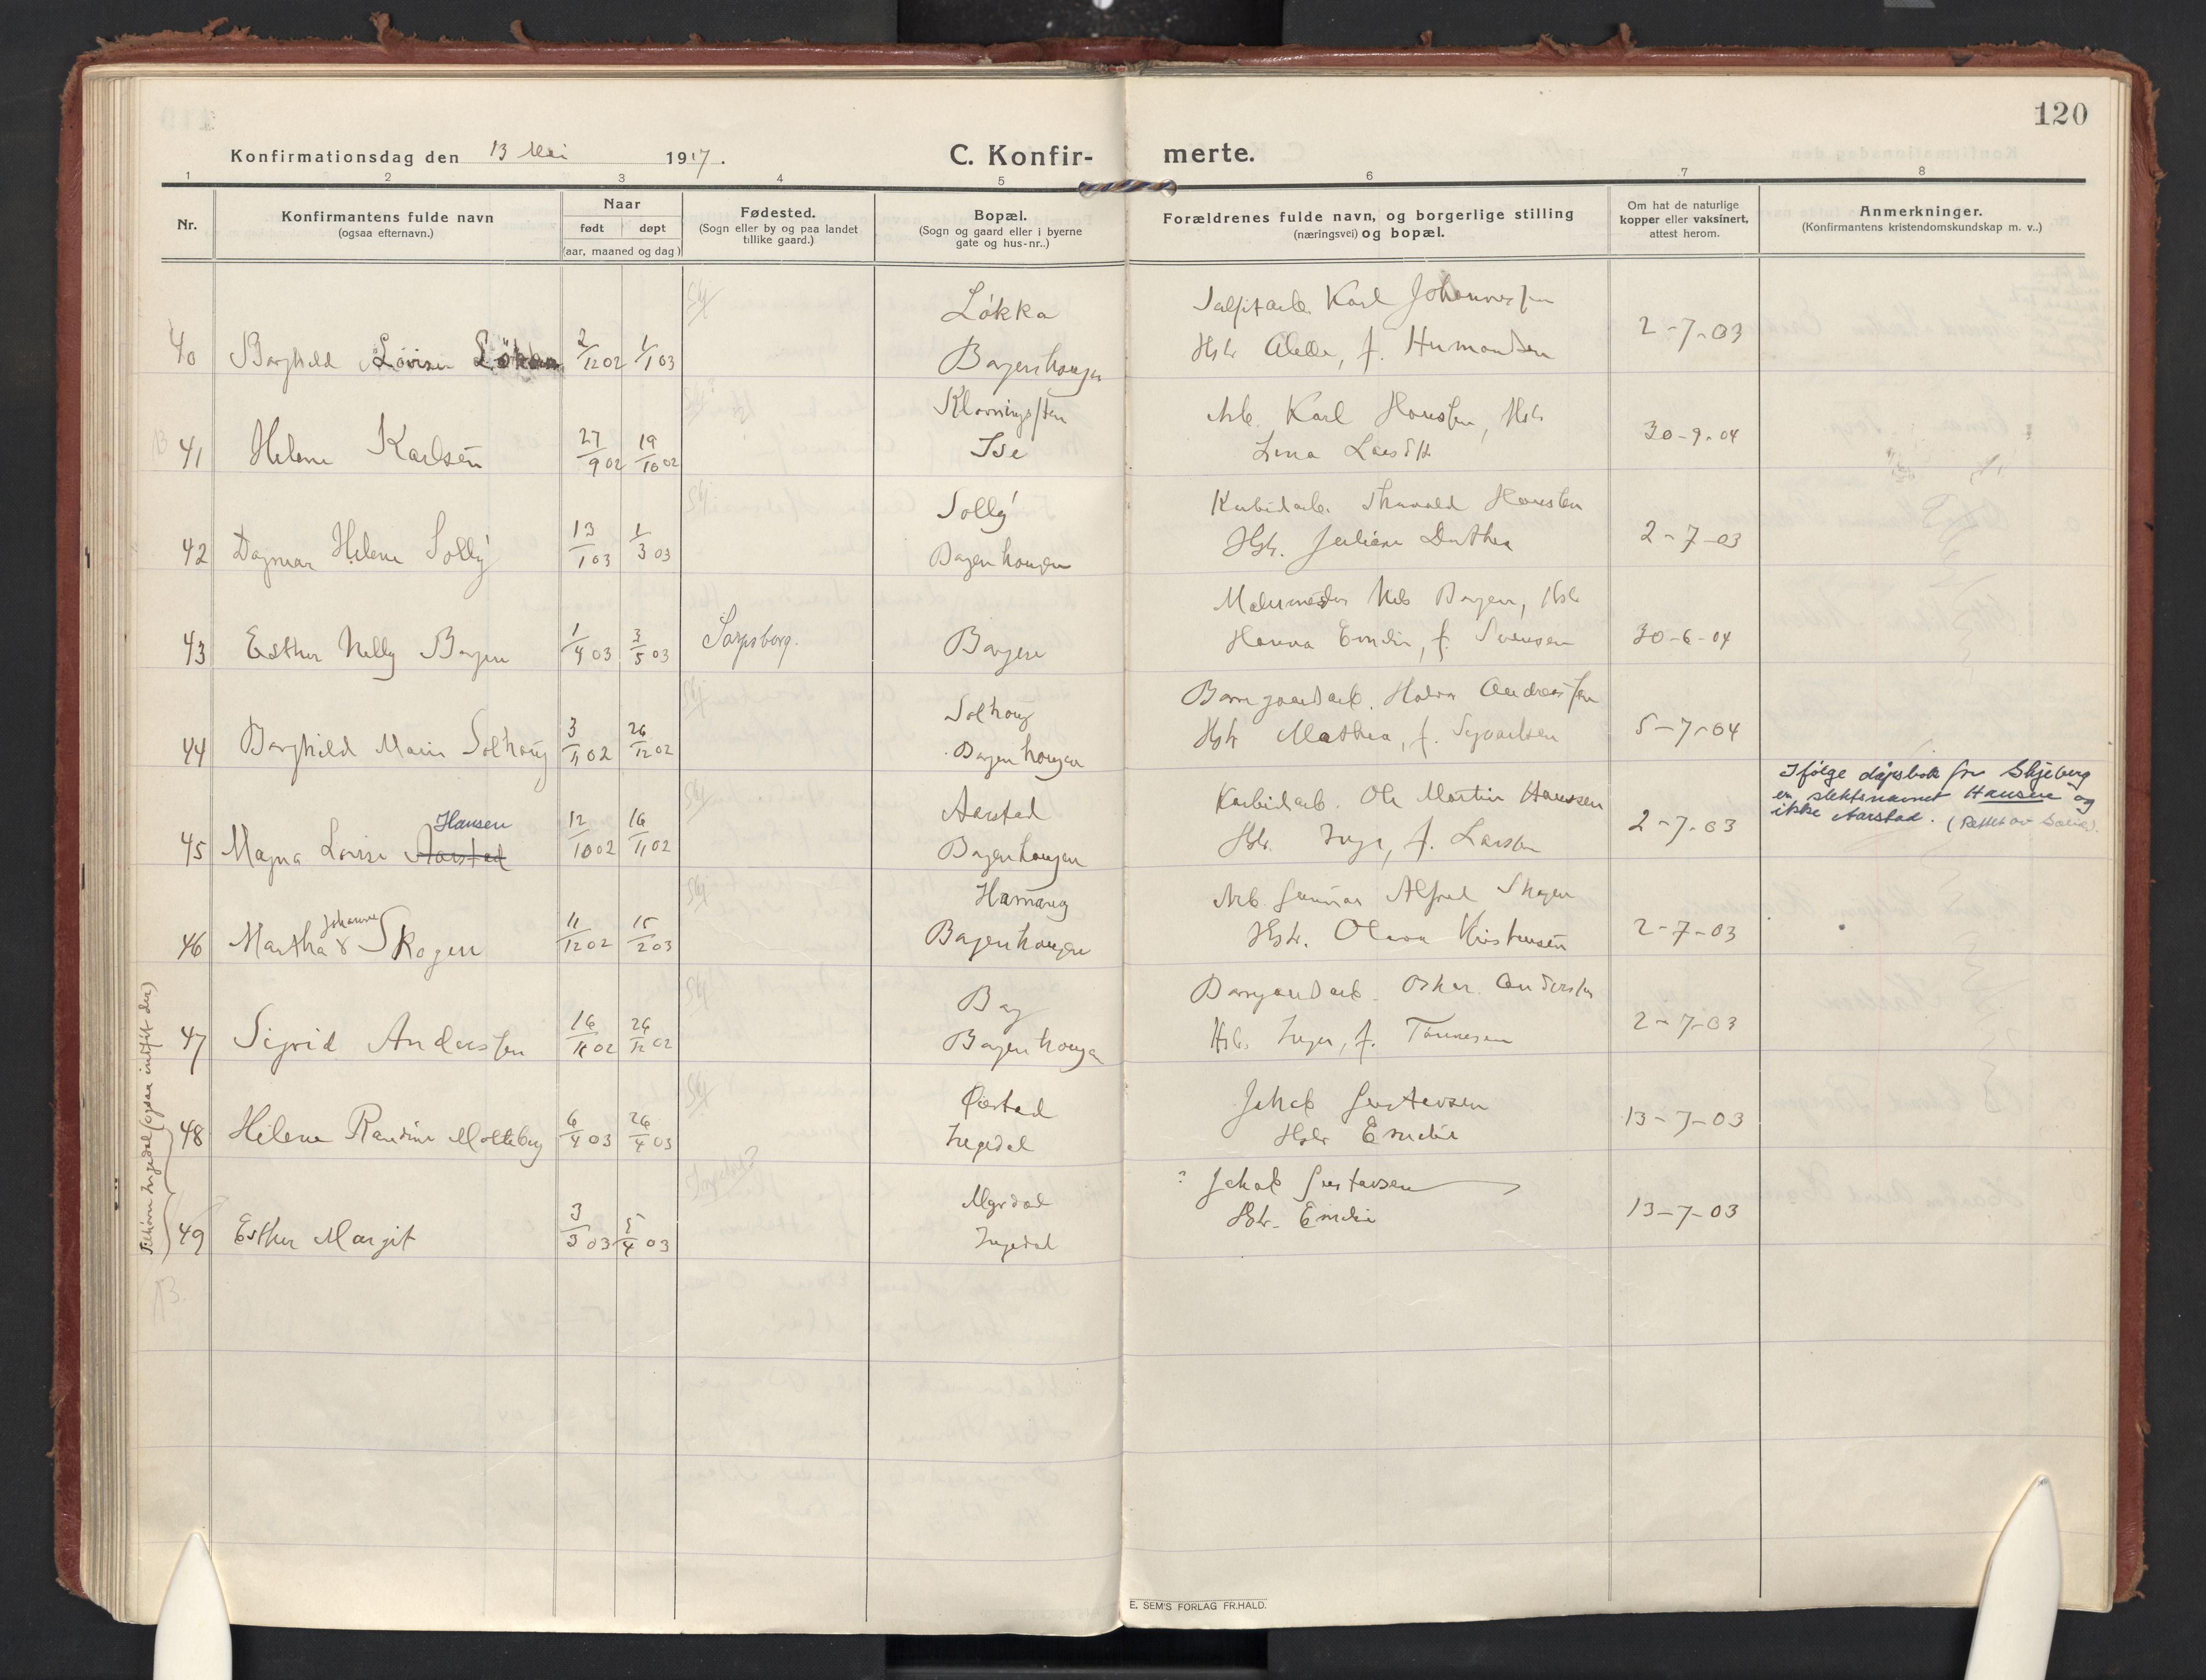 120
Konfirmationsdag den 13 Mai 1917.
C. Konfir- merte.
1 2 3 4 5 6 7 8
Nr.
Konfirmantens fulde navn
(ogsaa efternavn.)
Naar
født døpt
(aar, maaned og dag)
Fødested.
(Sogn eller by og paa landet
tillike gaard.)
Bopæl.
(Sogn og gaard eller i byerne
gate og hus-nr..)
Forældrenes fulde navn, og borgerlige stilling
(næringsvei) og bopæl.
Om hat de naturlige
kopper eller vaksinert,
attest herom.
Anmerkninger.
(Konfirmantens kristendomskundskap m. v..)
Skj
Løkka
Karl Johannessen
40 Borghild Lovise Løkka 2/12 02 1/1 03
Borgenhaugen
Hstr f.
2-7-03
Klavningsten
Arb. Karl Hansen, Hstr
41 Helene Karlsen 27/9 02 19/10 02
Ise
Lina
30-9-04
Skj
Solly
Karbidarb. Thorvald Hansen
42 Dagmar Helene Solly 13/1 03 1/3 03
Borgenhaugen
Hstr. Juliane Dorthea
2-7-03
Malermester Nils Borgen, Hstr
43 Esther Nelly Borgen 1/4 03 3/5 03
Sarpsborg.
Borgen
Hanna Emilie, f. Svensen
30-6-04
Skj
Solhaug
Andreassen
44 Borghild Marie Solhaug 3/11 02 26/12 02
Borgenhaugen
Hstr Mathea, f. Syvertsen
5-7-04
Skj
Aarstad
Karbidarb. Ole Martin Hanssen
Ifølge dåpsbok for Skjeberg
er slektsnavnet Hansen og
ikke Aarstad. (Rettet av
Hansen
45 Magna Lovise Aarstad 12/10 02 16/11 02
Borgenhaugen
Hstr. Inga, f. Larsen
2-7-03
Skj
Hamang
Arb. Gunnar Alfred Skogen
Johanne
46 Martha Skogen 11/12 02 15/2 03
Borgenhaugen
Hstr. Kristensen
2-7-03
Skj
Borg
Oskar Andersen
47 Sigrid Anderssen 16/11 02 26/12 02
Borgenhaugen
Hstr. Inga, f. Tønnesen
2-7-03
Skj
Ørstad
Jakob Gustavsen
48 Helene Randine Molteberg 6/4 03 26/4 03
Ingedal
Hstr Emilie
13-7-03
Ingedal
? Jakob Gustavsen
49 Esther Margit 3/3 03 5/4 03
Ingedal
Hstr. Emilie
13-7-03
Tilhører Ingedal (ogsaa indført der)
E. SEM'S FORLAG FR.HALD.